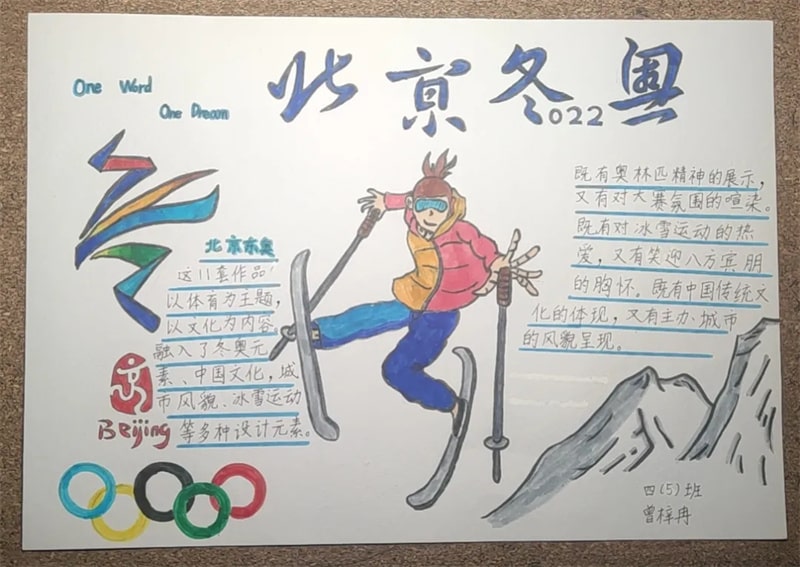 One Word
One Dream
北京冬奥
2022
北京东奥
这11套作品
以体育为主题，
以文化为内容。
融入了冬奥元
素、中国文化，城
市风貌、冰雪运动
等多种设计元素。
Beijing
既有奥林匹精神的展示，
又有对大赛氛围的喧染。
既有对冰雪运动的热
爱，又有笑迎八方宾朋
的胸怀。既有中国传统文
化的体现，又有主办城市
的风貌呈现。
四(5)班
曾梓冉